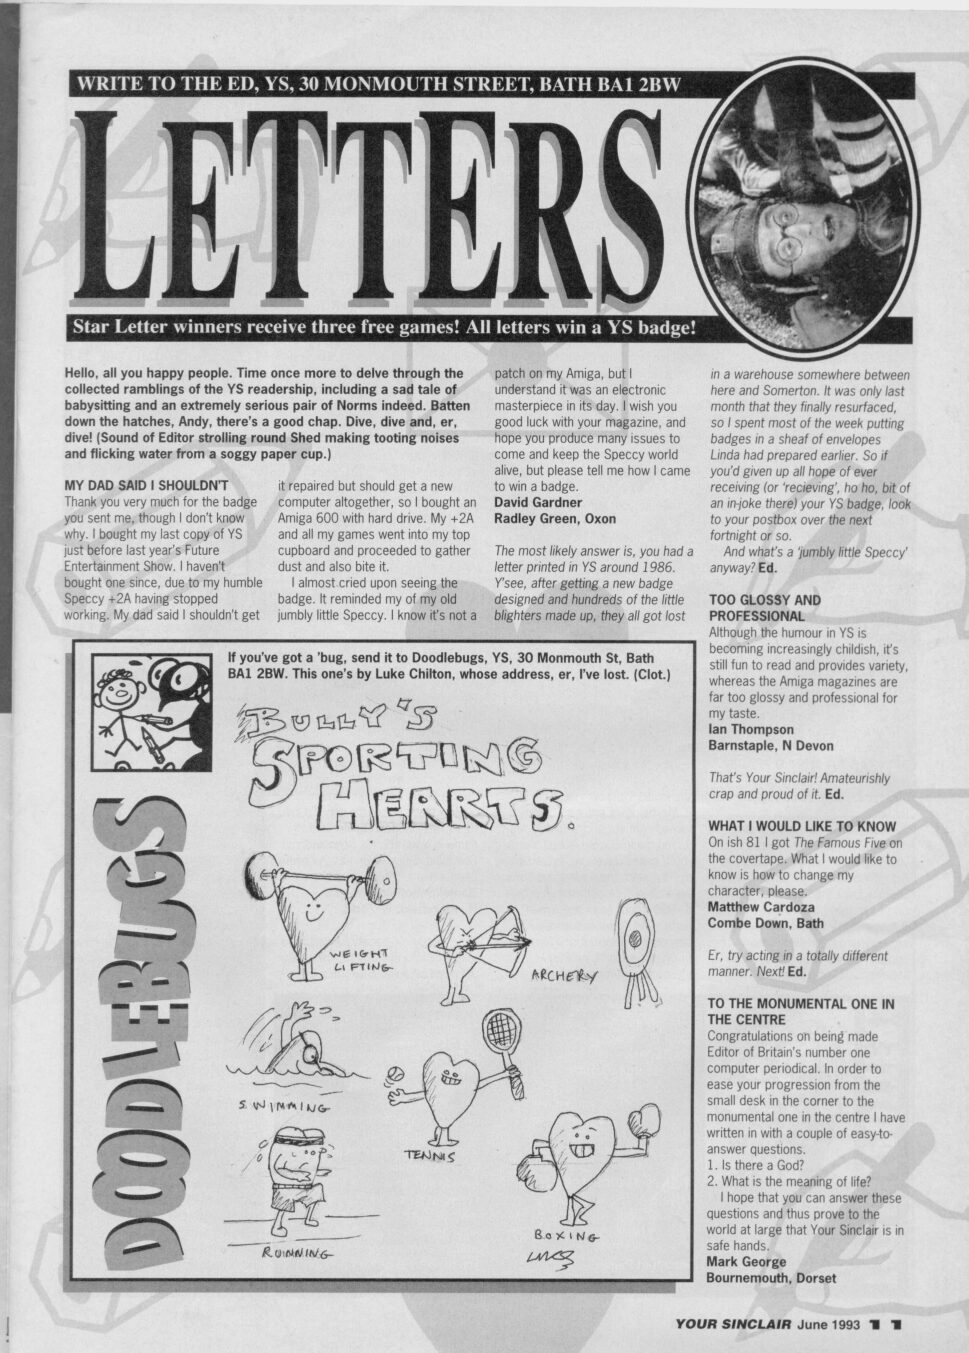 WRITE TO THE ED, YS, 30 MONMOUTH STREET, BATH BA1 2BW
LETTERS
Star Letter winners receive three free games! All letters win a YS badge!
Hello, all you happy people. Time once more to delve through the
collected ramblings of the YS readership, including a sad tale of
babysitting and an extremely serious pair of Norms indeed. Batten
down the hatches, Andy, there's a good chap. Dive, dive and, er,
dive! (Sound of Editor strolling round Shed making tooting noises
and flicking water from a soggy paper cup.)
MY DAD SAID I SHOULDN'T
Thank you very much for the badge
you sent me, though I don't know
why. I bought my last copy of YS
just before last year's Future
Entertainment Show. I haven't
bought one since, due to my humble
Speccy +2A having stopped
working. My dad said I shouldn't get
it repaired but should get a new
computer altogether, so I bought an
Amiga 600 with hard drive. My +2A
and all my games went into my top
cupboard and proceeded to gather
dust and also bite it.
I almost cried upon seeing the
badge. It reminded my of my old
jumbly little Speccy. I know it's not a
patch on my Amiga, but I
understand it was an electronic
masterpiece in its day. I wish you
good luck with your magazine, and
hope you produce many issues to
come and keep the Speccy world
alive, but please tell me how I came
to win a badge.
David Gardner
Radley Green, Oxon
The most likely answer is, you had a
letter printed in YS around 1986.
Y'see, after getting a new badge
designed and hundreds of the little
blighters made up, they all got lost
in a warehouse somewhere between
here and Somerton. It was only last
month that they finally resurfaced,
so I spent most of the week putting
badges in a sheaf of envelopes
Linda had prepared earlier. So if
you'd given up all hope of ever
receiving (or 'recieving', ho ho, bit of
an in-joke there) your YS badge, look
to your postbox over the next
fortnight or so.
And what's a 'jumbly little Speccy'
anyway? Ed.
TOO GLOSSY AND
PROFESSIONAL
Although the humour in YS is
becoming increasingly childish, it's
still fun to read and provides variety,
whereas the Amiga magazines are
far too glossy and professional for
my taste.
Ian Thompson
Barnstaple, N Devon
That's Your Sinclair! Amateurishly
crap and proud of it. Ed.
WHAT I WOULD LIKE TO KNOW
On ish 81 I got The Famous Five on
the covertape. What I would like to
know is how to change my
character, please.
Matthew Cardoza
Combe Down, Bath
Er, try acting in a totally different
manner. Next! Ed.
TO THE MONUMENTAL ONE IN
THE CENTRE
Congratulations on being made
Editor of Britain's number one
computer periodical. In order to
ease your progression from the
small desk in the corner to the
monumental one in the centre I have
written in with a couple of easy-to-
answer questions.
1. Is there a God?
2. What is the meaning of life?
I hope that you can answer these
questions and thus prove to the
world at large that Your Sinclair is in
safe hands.
Mark George
Bournemouth, Dorset
If you've got a 'bug, send it to Doodlebugs, YS, 30 Monmouth St, Bath
BA1 2BW. This one's by Luke Chilton, whose address, er, I've lost. (Clot.)
DOODLEBUGS
BULLY'S
SPORTING
HEARTS.
WEIGHT
LIFTING
ARCHERY
SWIMMING
TENNIS
RUNNING
BOXING
YOUR SINCLAIR June 1993 11